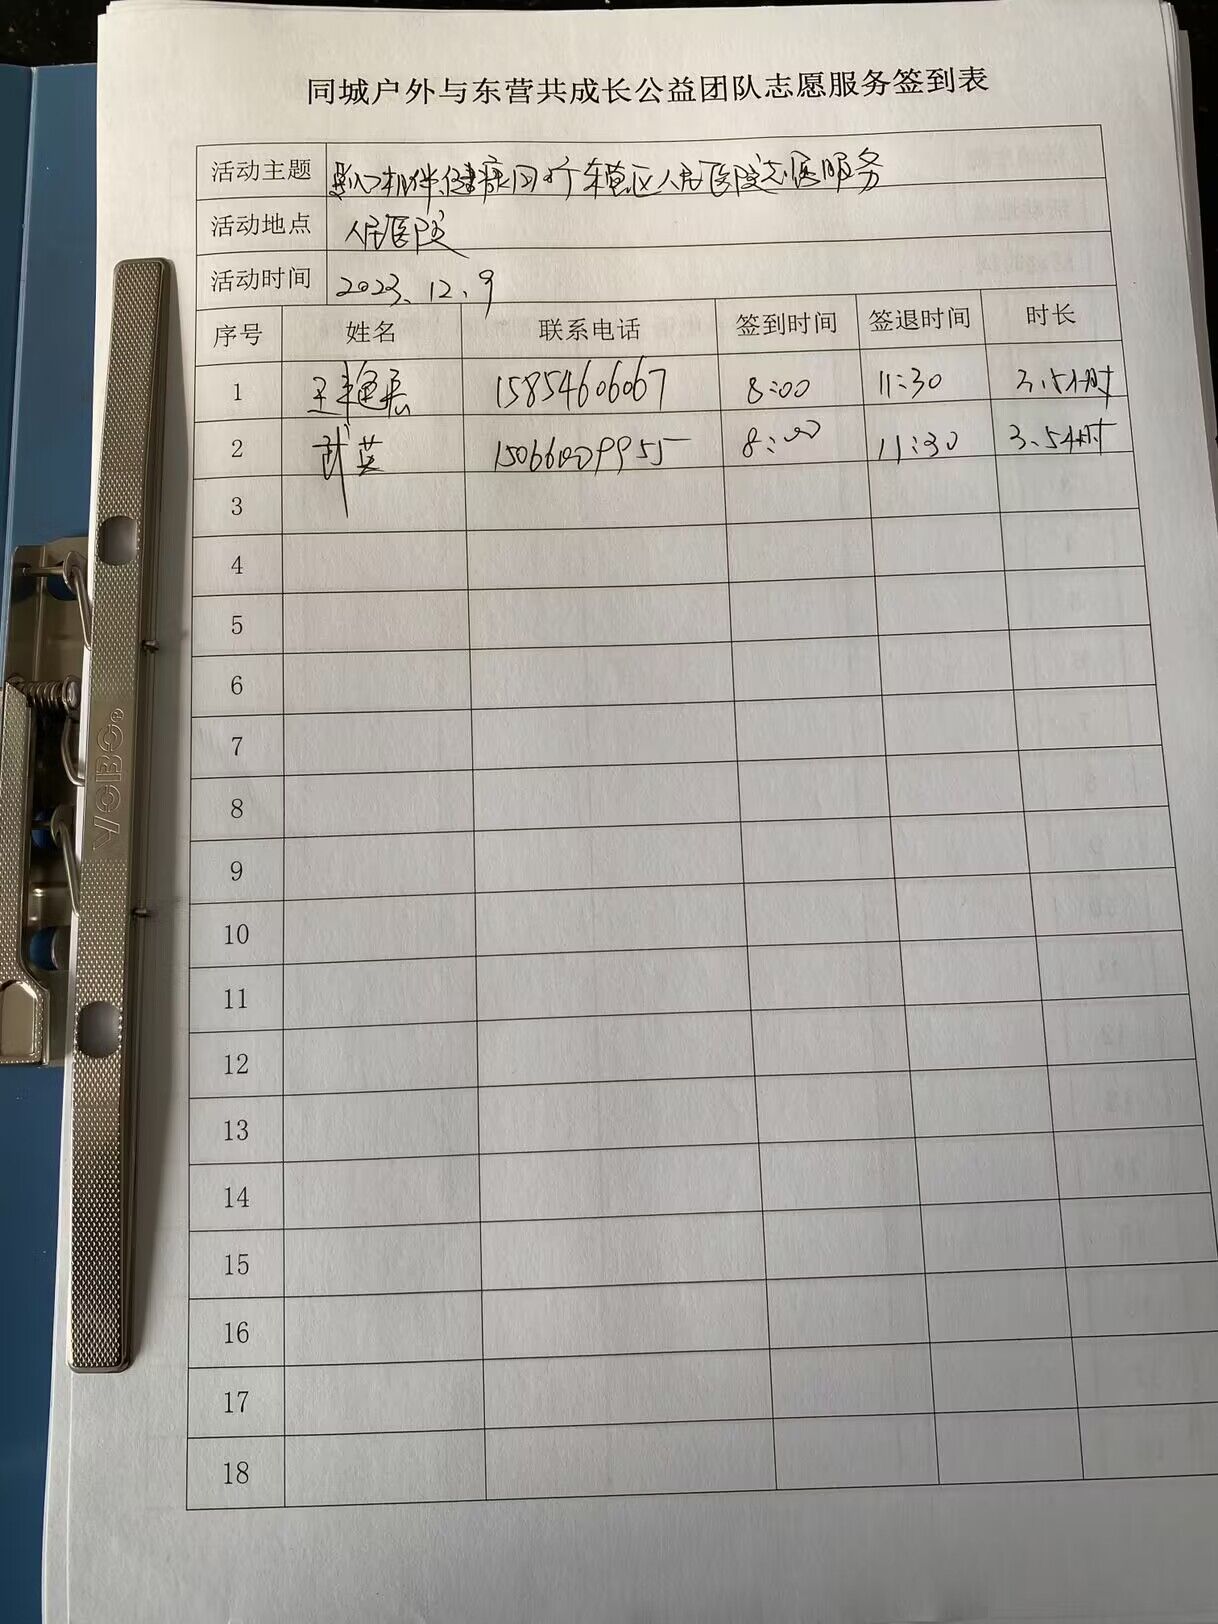 同城户外与东营共成长公益团队志愿服务签到表
活动主题 相伴 健康同行 东营区人民医院志愿服务
活动地点 人民医院
活动时间 2023.12.9
序号 姓名 联系电话 签到时间 签退时间 时长
1 15854606067 8:00 11:30 3.5小时
2 英 15066009955 8:00 11:30 3.5小时
3
4
5
6
7
8
9
10
11
12
13
14
15
16
17
18
KOBO